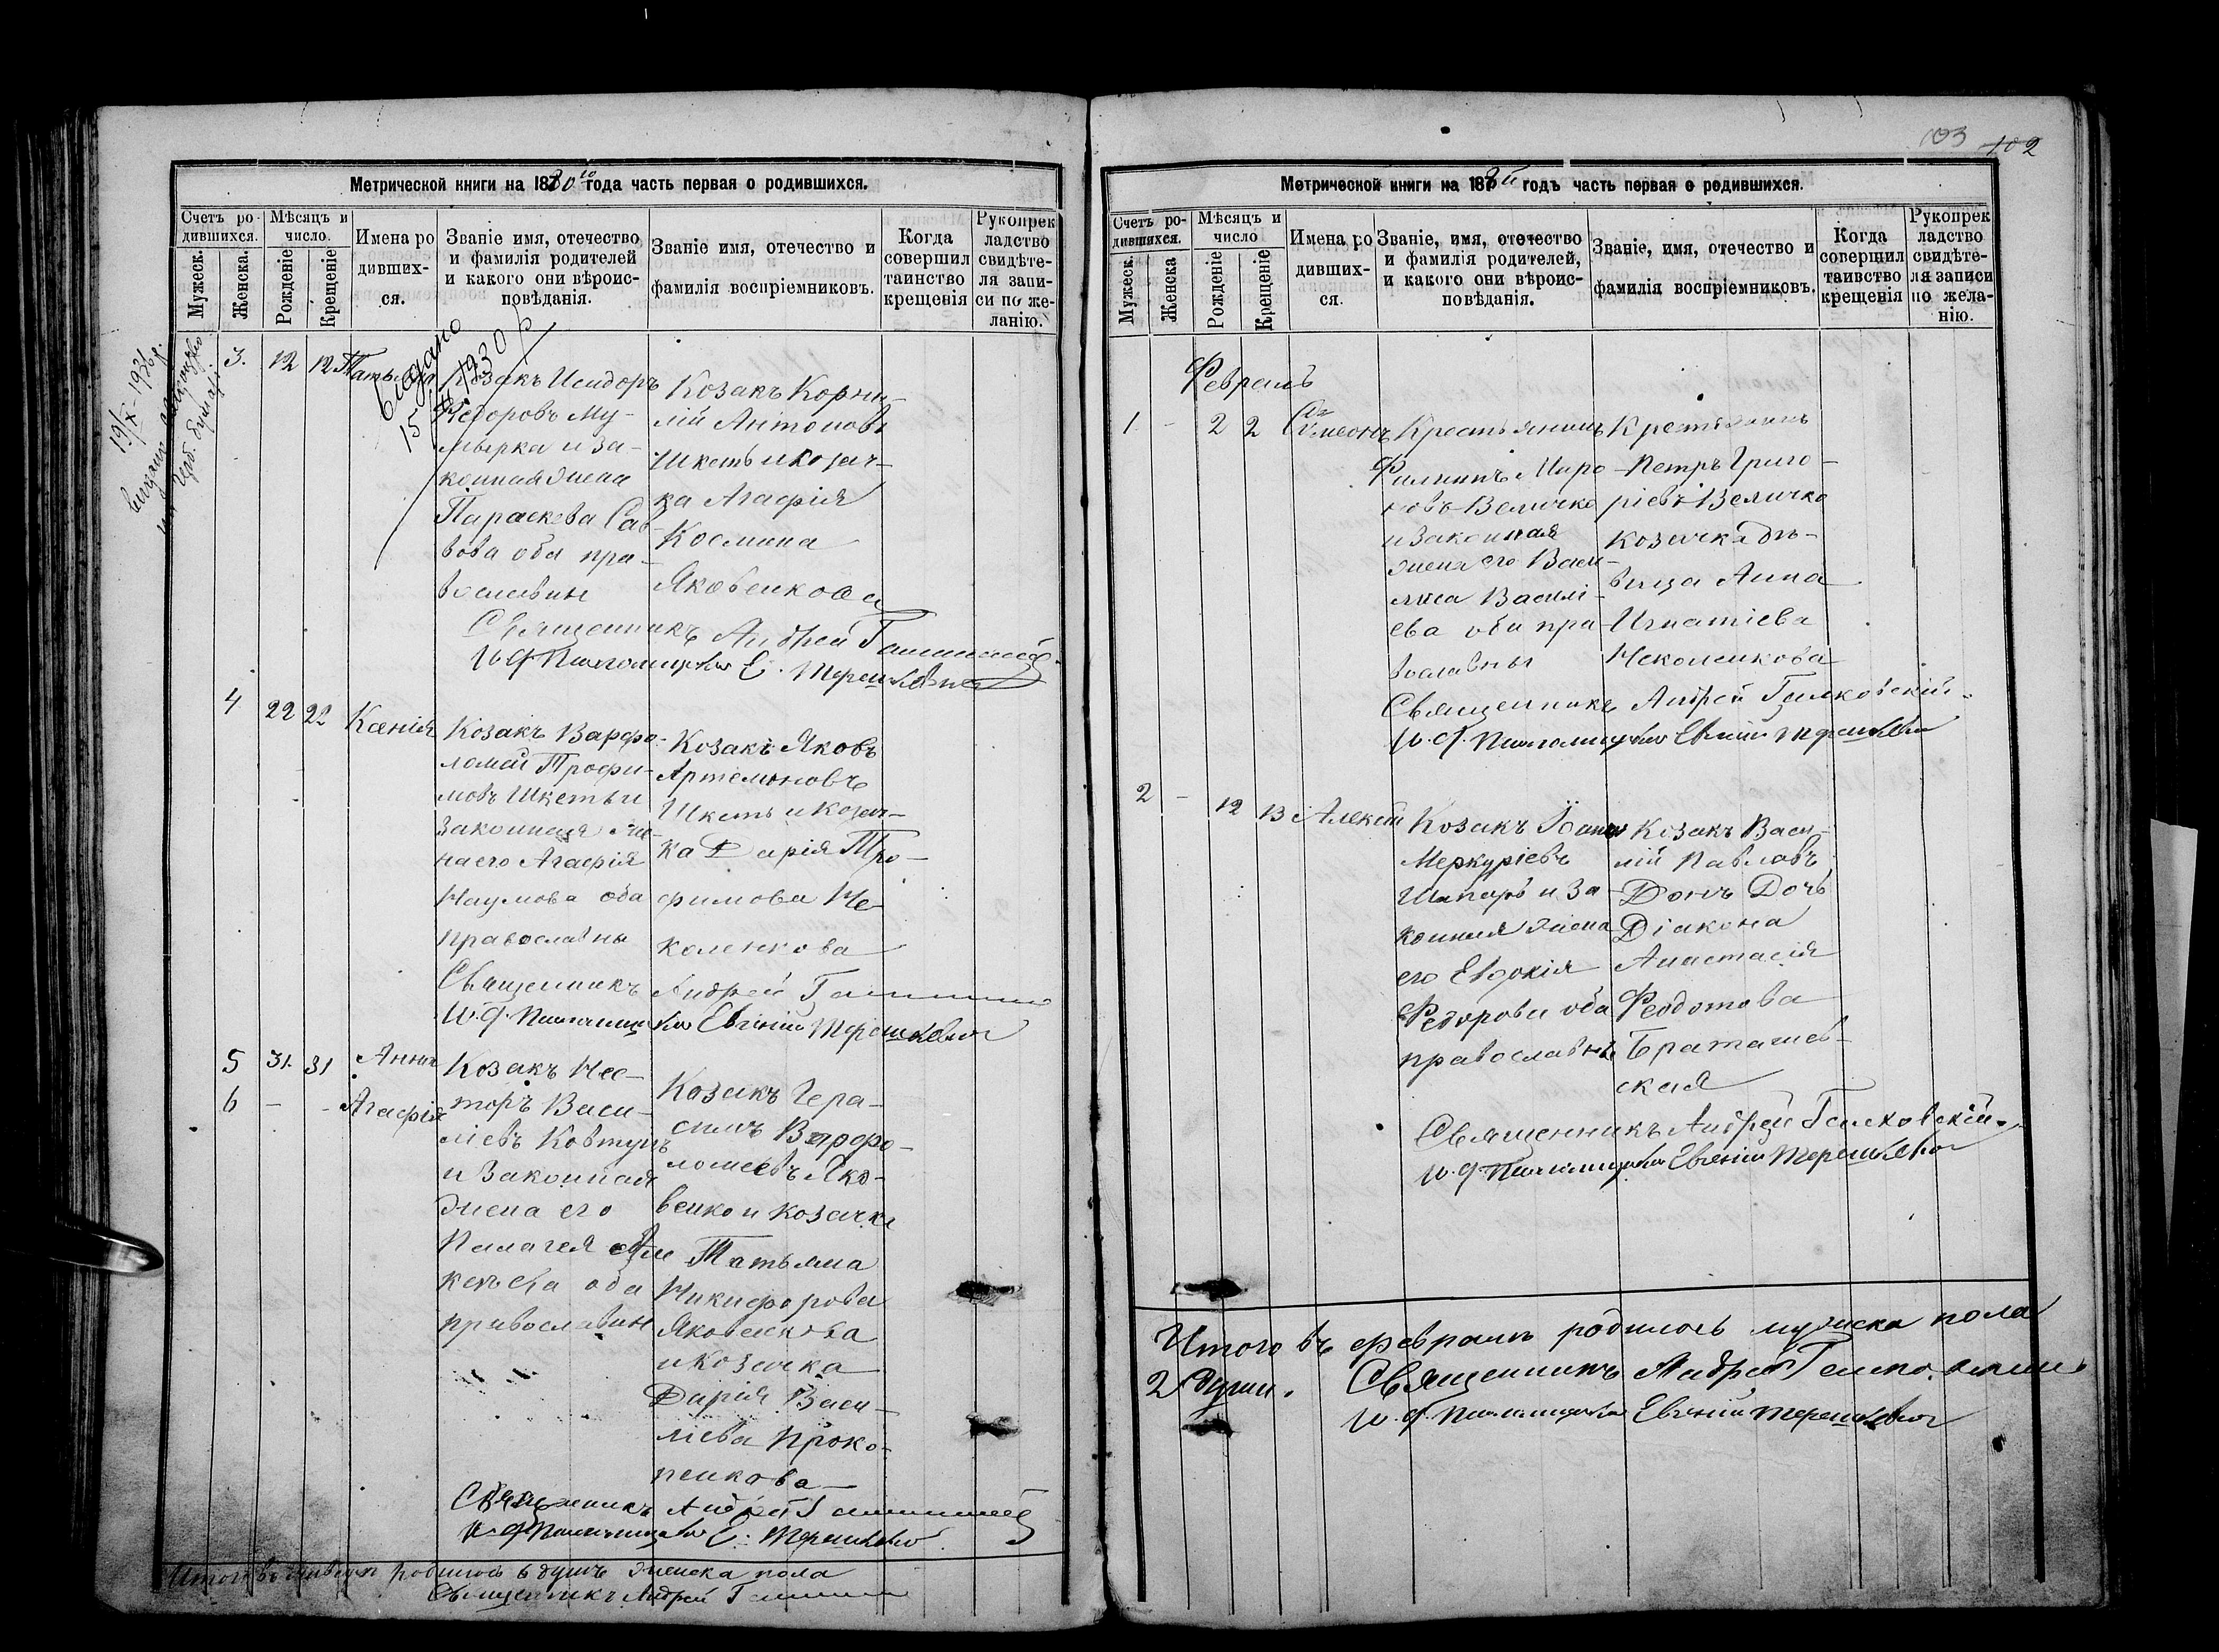 Метрической книги на 1880го года часть первая о родившихся.
Счетъ родившихся.
Мужеск.
Женска.
Мѣсяцъ и число.
Рожденіе
Крещеніе
Имена родивших-
ся.
Званіе имя, отечество
и фамилія родителей
и какого они вѣроис-
повѣданія.
Званіе имя, отечество и
фамилія воспріемниковъ.
Когда
совершил
таинство
крещенія
Рукоприк
ладство
свидѣте-
ля запи-
си по же-
ланію.
видано
15 1930 р
19/X-1936 р.
3. 12 12 Татьяна
Козакъ Исидоръ
Федоровъ Му-
мырка и за-
конная жена
Параскева Сав-
вова оба пра-
вославны
Козакъ Корни-
лій Антоновъ
Шкеть и козач-
ка Агафія
Космина
Яковенкова
Священникъ Андрей
И. д. Псаломщика Е. Терешкевич
4 22 22 Ксенія
Козакъ Варфо-
ломей Трофи-
мовъ Шкеть и
законная же-
на его Агафія
Наумова оба
православны
Козакъ Яковъ
Артемоновъ
Шкеть и козач-
ка Дарія Тро-
фимова Не-
коленкова
Священникъ Андрей
И. д. Псаломщика Евгеній Терешкевич
5 31 31 Анна
6 - - Агафія
Козакъ Нес-
торъ Васи-
ліевъ Ковтунъ
и законная
жена его
Пелагея Але-
кеѣва оба
православны
Козакъ Гера-
симъ Варфо-
ломеевъ Яко-
венко и козачка
Татьяна
Никифорова
Яковенкова
и козачка
Дарія Васи-
ліева Проко-
пенкова
Священникъ Андрей
И. д. Псаломщика Е. Терешкевич
Итого въ январѣ родилось 6 душъ женска пола
Священникъ Андрей
103 102
Метрической книги на 188й годъ часть первая о родившихся.
Счетъ ро-
дившихся.
Мужеск.
Женска
Мѣсяцъ и
число
Рожденіе
Крещеніе
Имена ро
дивших-
ся.
Званіе, имя, отечество
и фамилія родителей,
и какого они вѣроис-
повѣданія.
Званіе, имя, отечество и
фамилія воспріемниковъ.
Когда
совершил
таинство
крещенія
Рукопрек
ладство
свидѣте-
ля записи
по жела-
нію.
Февраль
1 - 2 2 Симеонъ
Крестьянинъ
Филиппъ Миро
новъ Величко
и законная
жена его Васи-
лиса Василі-
ева оба пра-
вославны
Крестьянинъ
Петръ Григо-
ріевъ Величко
козачка дѣ-
вица Анна
Игнатіева
Неколенкова
Священникъ Андрей Галковскій
И. д. Псаломщика Евгеній Терешкевич
2 - 12 13 Алексій
Козакъ Іоаннъ
Меркуріевъ
Шапаръ и за
конная жена
его Евдокія
Федорова оба
православны
Козакъ Васи-
лій Павловъ
Донъ Дочь
Діакона
Анастасія
Феодотова
Браташев-
ская
Священникъ Андрей Галковскій
И. д. Псаломщика Евгеній Терешкевич
Итого въ февралѣ родилось мужеска пола
2 души. Священникъ Андрей Галковскій
И. д. Псаломщика Евгеній Терешкевич